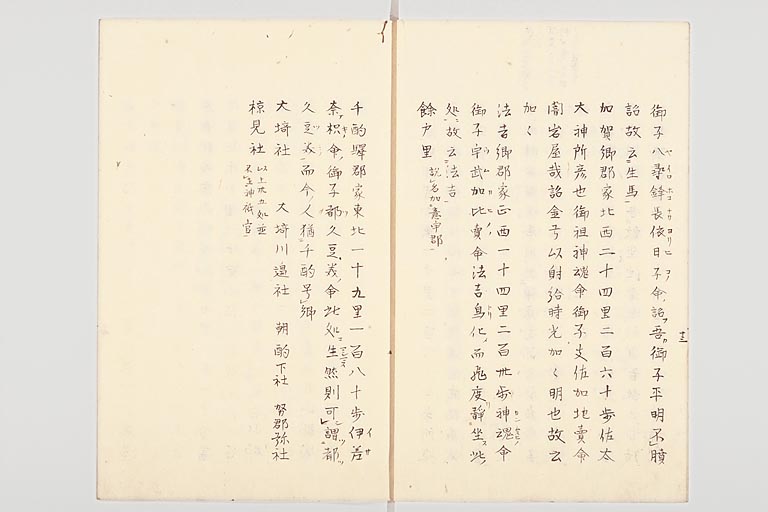 御子八尋鉾長依日子命詔吾御子平明不憤
詔故云生馬
加賀郷郡家北西二十四里二百六十歩佐太
大神所彦也御祖神魂命御子支佐加地賣命
闇岩屋哉詔金弓以射給時光加〻明也故云
加〻
法吉郷郡家正西一十四里二百卅歩神魂命
御子宇武加比賣命法吉鳥化而飛度静坐此
処故云法吉
餘戸里 説名如意宇郡
千酌驛郡家東北一十九里一百八十歩伊差
奈枳命御子都久豆美命此処生然則可謂都
久豆美而今人猶千酌号郷
大埼社 大埼川邉社 朔酌下社 努那弥社
椋見社 以上 五処並
不在神祇官